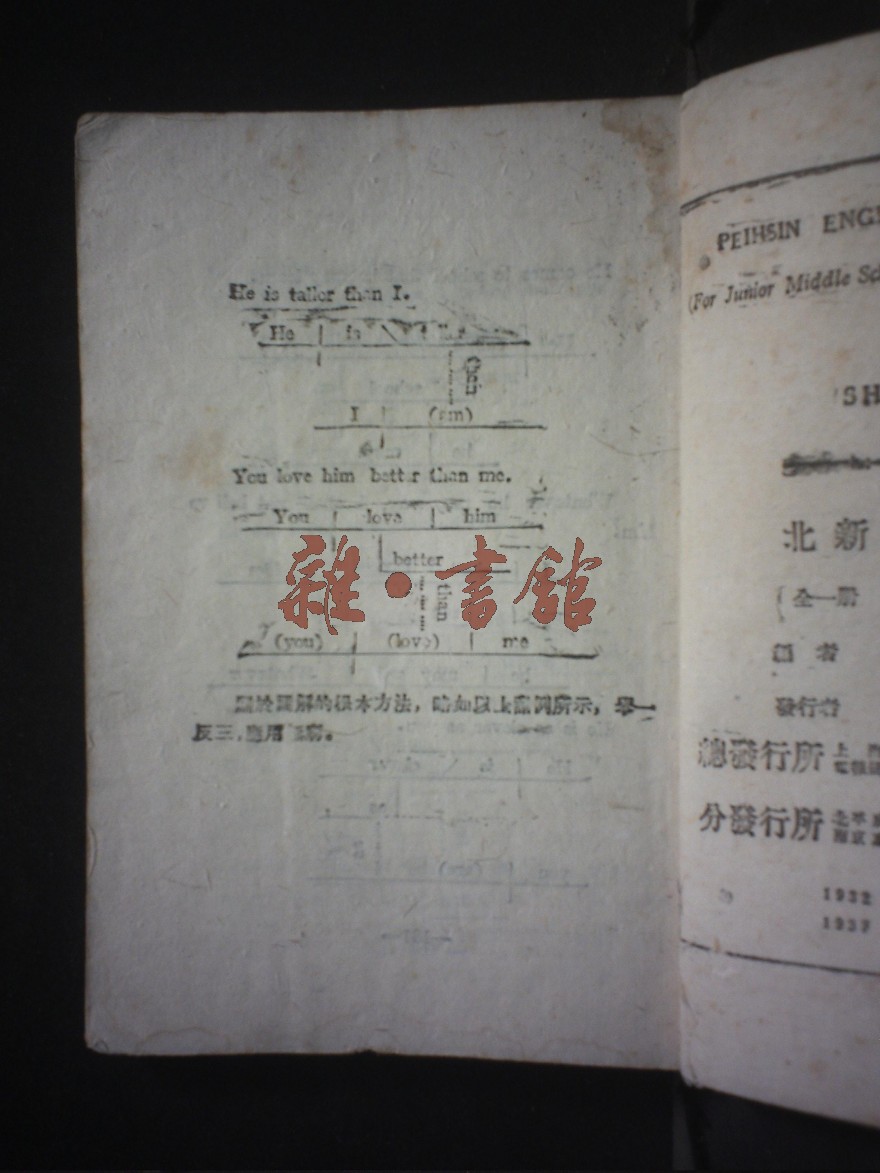 He is taller than I.
He is
than
I (am)
You love him better than me.
You love him
better
than
(you) (love) me
關於圖解的根本方法，略如以上範例所示，舉一
反三，應用
雜·書館
PEIHSIN ENGL
(For Junior Middle Sc
SH
北新
全一册
編者
發行者
總發行所 上
分發行所 北平
南京
1932
1937